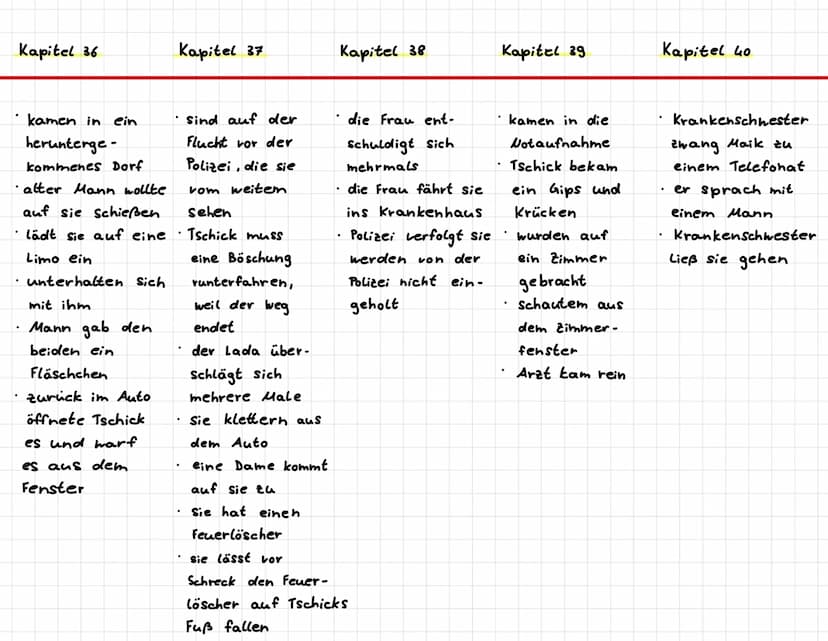 Kapitel 36
· kamen in ein
herunterge-
kommenes Dorf
· alter Mann wollte
auf sie schießen
· lädt sie auf eine
Limo ein
· unterhalten sich
mit ihm
· Mann gab den
beiden ein
Fläschchen
· zurück im Auto
öffnete Tschick
es und warf
es aus dem
Fenster
Kapitel 37
· sind auf der
Flucht vor der
Polizei, die sie
vom weitem
sehen
· Tschick muss
eine Böschung
runterfahren,
weil der Weg
endet
· der Lada über-
schlägt sich
mehrere Male
· sie klettern aus
dem Auto
· eine Dame kommt
auf sie zu
· sie hat einen
Feuerlöscher
· sie lässt vor
Schreck den Feuer-
löscher auf Tschicks
Fuß fallen
Kapitel 38
· die Frau ent-
schuldigt sich
mehrmals
· die Frau fährt sie
ins Krankenhaus
· Polizei verfolgt sie
werden von der
Polizei nicht ein-
geholt
Kapitel 39
· kamen in die
Notaufnahme
· Tschick bekam
ein Gips und
Krücken
· wurden auf
ein Zimmer
gebracht
· schautem aus
dem Zimmer-
fenster
· Arzt kam rein
Kapitel 40
· Krankenschwester
zwang Maik zu
einem Telefonat
· er sprach mit
einem Mann
· Krankenschwester
ließ sie gehen